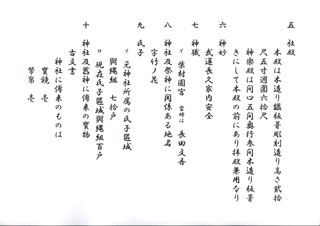 五 社殿
本殿は木造り鐵板葺彫刻造り高さ貳拾
尺五寸週囲六拾尺
神楽殿は間口五間奥行参間木造り板葺
きにして本殿の前にあり拝殿兼用なり
六 神妙
武運長久家内安全
七 神職
柴村園宮 当時は 長田文吾
八 神社及祭神に関係ある地名
字竹ノ花
九 氏子
イ 元神社所属の氏子区域
與縄組 七拾戸
ロ 現在氏子区域與縄組百戸
十 神社及旧神に傳来の宝物
古文書
神社に傳来のものは
宝鏡 壱
幣帛 壱